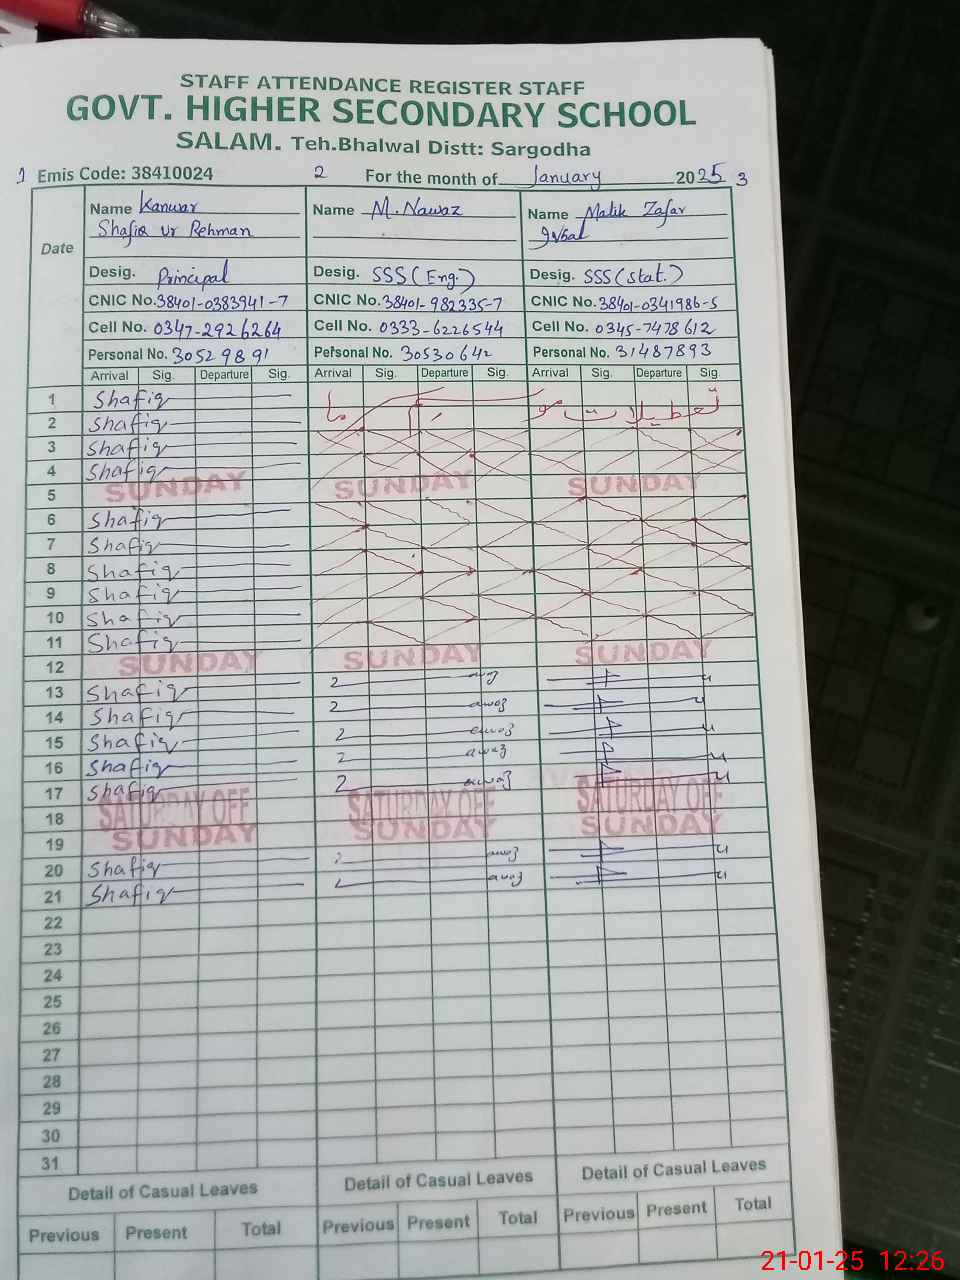 STAFF ATTENDANCE REGISTER STAFF
GOVT. HIGHER SECONDARY SCHOOL
SALAM. Teh.Bhalwal Distt: Sargodha
1 Emis Code: 38410024 2 For the month of January 2025 3
Date
Name Kanwar
Shafiq ur Rehman
Desig. Principal
CNIC No.38401-0383941-7
Cell No. 0347-2926264
Personal No. 30529891
Name M.Nawaz
Desig. SSS (Eng.)
CNIC No.38401-982335-7
Cell No. 0333-6226544
Personal No. 30530642
Name Malik Zafar
Iqbal
Desig. SSS (Stat.)
CNIC No.38401-0341986-5
Cell No. 0345-7478612
Personal No. 31487893
Arrival Sig. Departure Sig. Arrival Sig. Departure Sig. Arrival Sig. Departure Sig.
1 Shafiq تعطیلات
2 Shafiq
3 Shafiq
4 Shafiq
5 SUNDAY SUNDAY SUNDAY
6 Shafiq
7 Shafiq
8 Shafiq
9 Shafiq
10 Shafiq
11 Shafiq
12 SUNDAY SUNDAY SUNDAY
13 Shafiq
14 Shafiq awaz
15 Shafiq awaz
16 Shafiq awaz
17 Shafiq awaz
18 SATURDAY OFF SATURDAY OFF SATURDAY OFF
19 SUNDAY SUNDAY SUNDAY
20 Shafiq awaz
21 Shafiq awaz
22
23
24
25
26
27
28
29
30
31
Detail of Casual Leaves Detail of Casual Leaves Detail of Casual Leaves
Previous Present Total Previous Present Total Previous Present Total
21-01-25 12:26